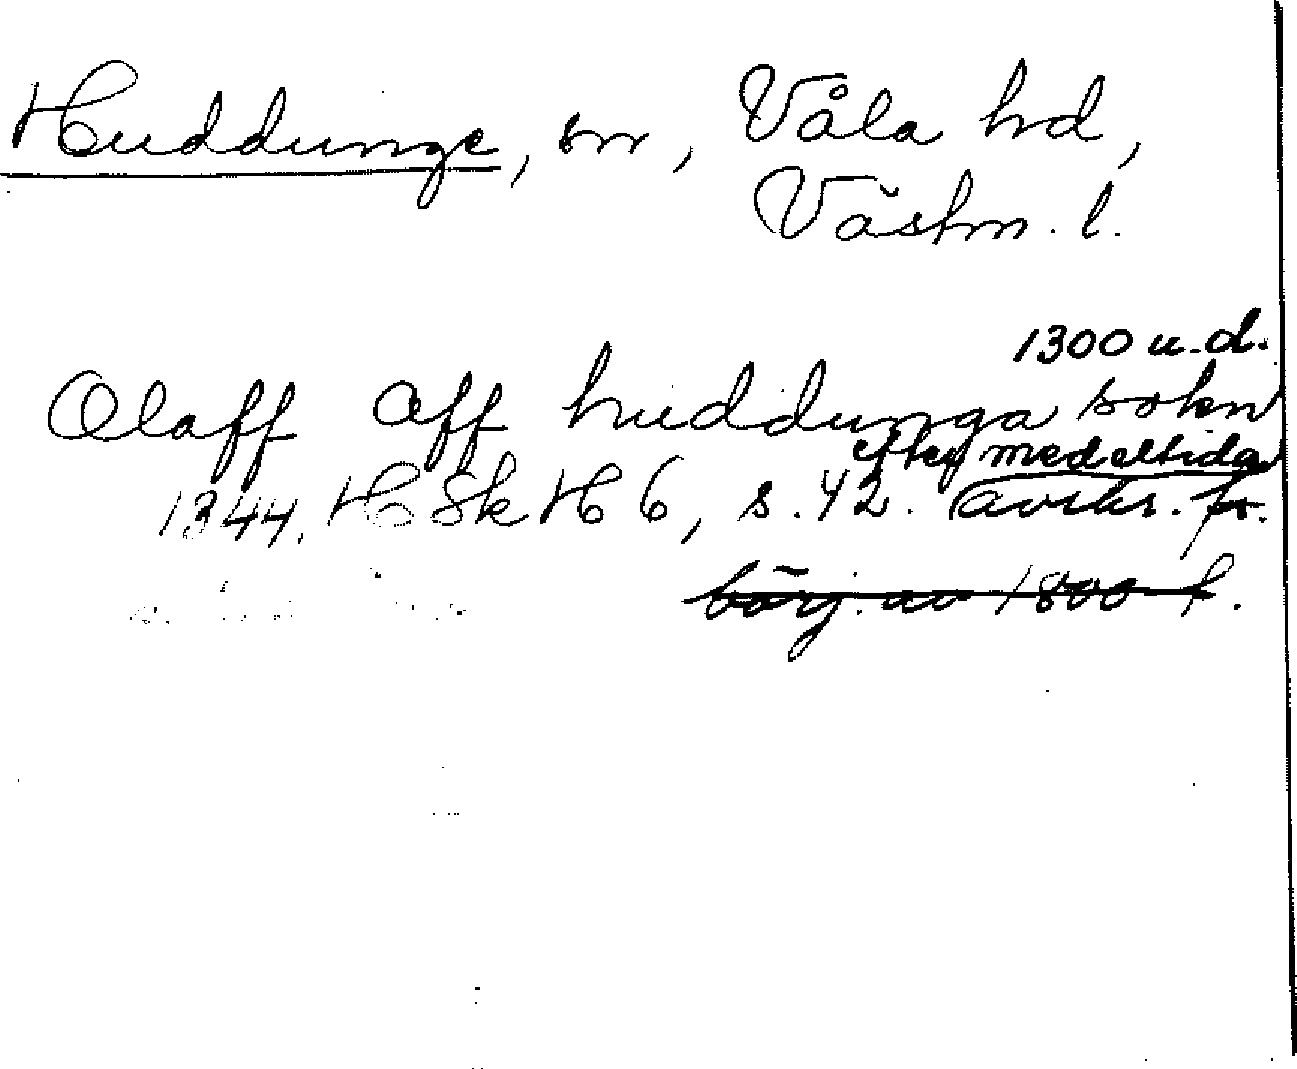 Huddunge, sn, Våla hd,
Västm. l.
1300 u.d.
Olaff aff huddunga sokn
efter medeltida
1344. HSkH 6, s. 42. avskr. fr.
börj. av 1800 t.